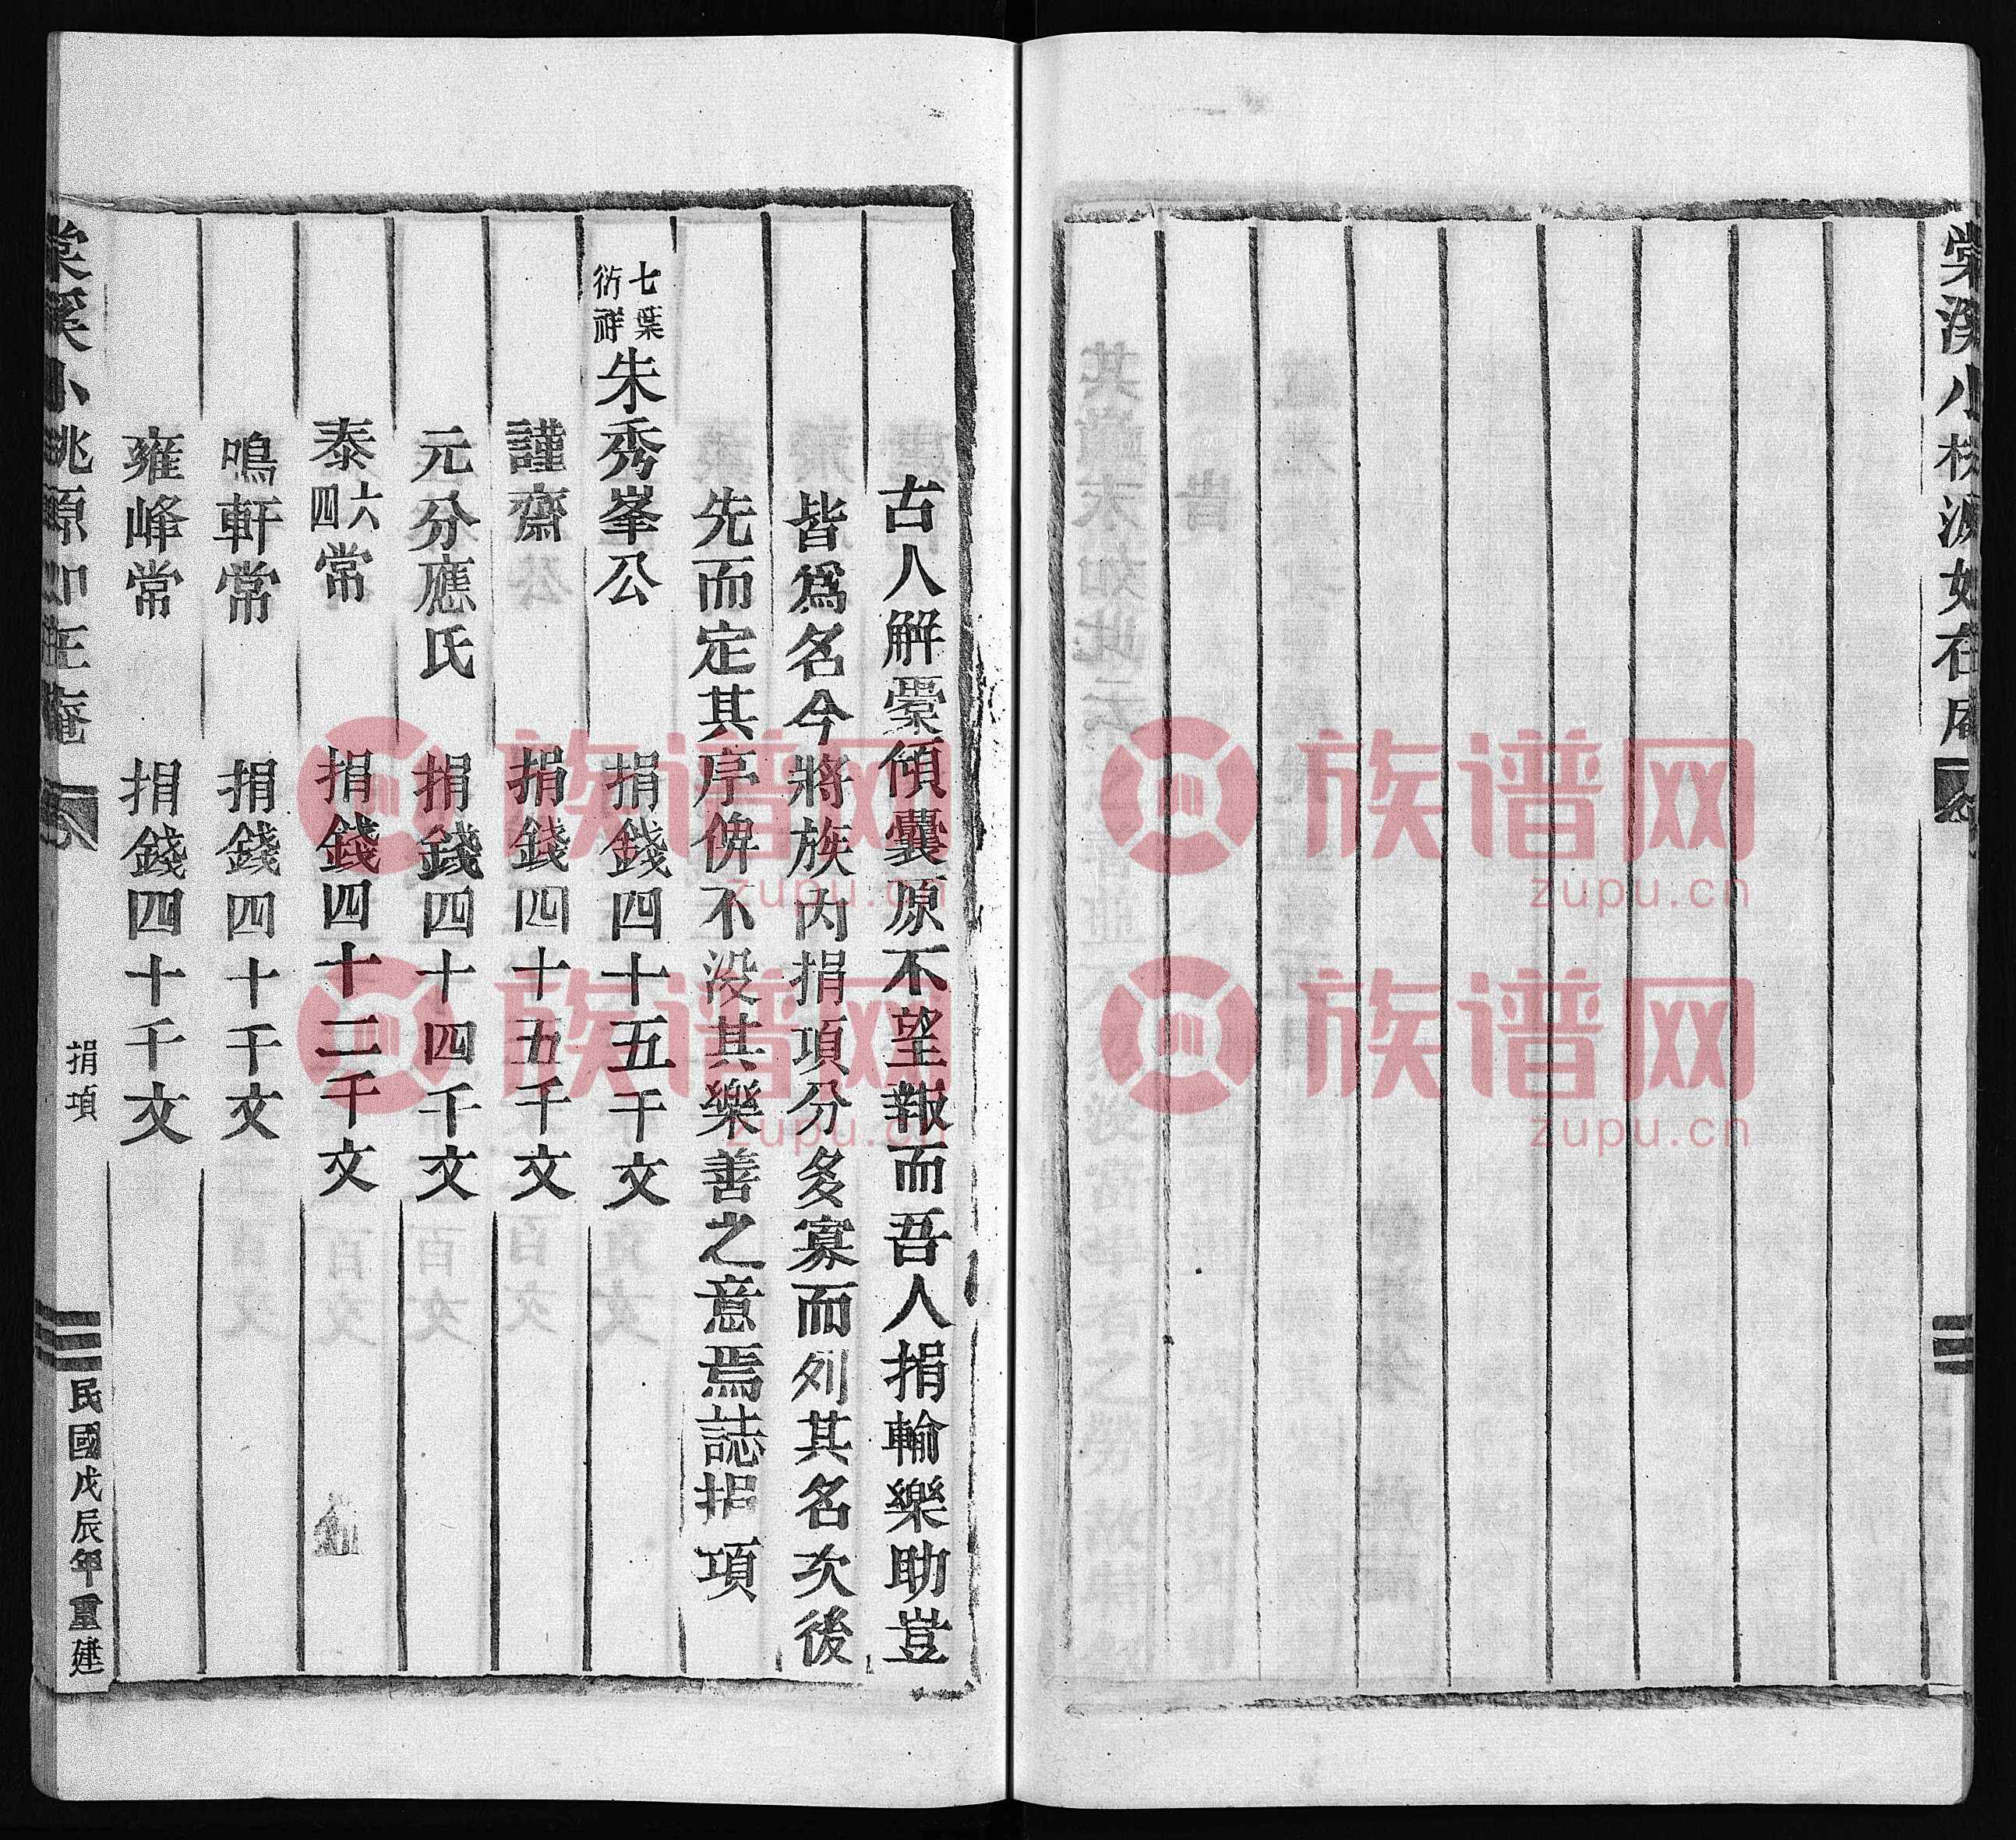 棠溪小桃源如在庵
古人解橐傾囊原不望報而吾人捐輸樂助豈
皆爲名今將族內捐項分多寡而列其名次後
先而定其序俾不没其樂善之意焉誌捐項
七葉衍祥朱秀峯公 捐錢四十五千文
謹齋 捐錢四十五千文
元分應氏 捐錢四十四千文
泰六四常 捐錢四十二千文
鳴軒常 捐錢四十千文
雍峰常 捐錢四十千文
棠溪小桃源如在庵 捐項 民國戊辰年重建
族谱网 zupu.cn
族谱网 zupu.cn
族谱网 zupu.cn
族谱网 zupu.cn